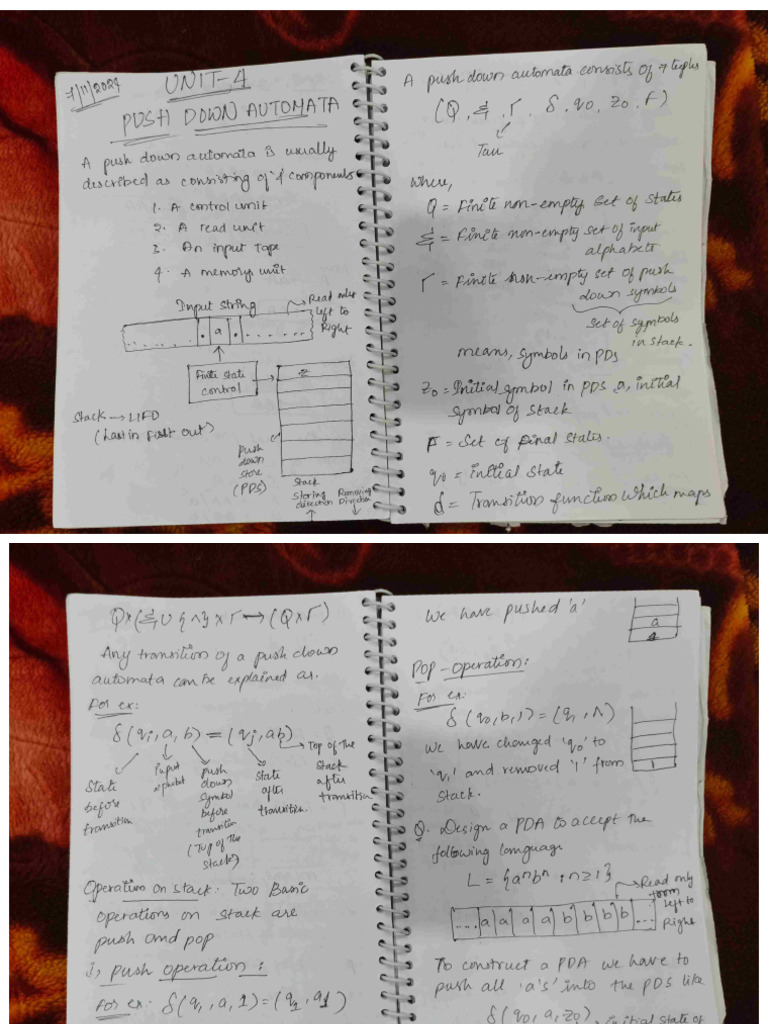 7/11/2024
UNIT-4
PUSH DOWN AUTOMATA
A push down automata is usually
described as consisting of 4 components
1. A control unit
2. A read unit
3. An input tape
4. A memory unit
Input string
Read only
left to
Right
a
Finite state
control
Z
Stack → LIFO
(Last in first out)
Push
down
store
(PDS)
Stack
Storing
direction
Removing
Direction
A push down automata consists of 7 tuples
(Q, Σ, Γ, δ, q0, z0, F)
Tau
where,
Q = Finite non-empty set of states
Σ = Finite non-empty set of input
alphabets
Γ = Finite non-empty set of push
down symbols
set of symbols
in stack.
means, symbols in PDS
Z0 = Initial symbol in PDS or, initial
symbol of stack
F = Set of final states.
q0 = initial state
δ = Transition function which maps
Q×(Σ∪{∧}×Γ→(Q×Γ)
Any transition of a push down
automata can be explained as.
For ex:
δ(qi, a, b) = (qj, ab)
Top of the
Stack
after
transition
State
before
transition
input
alphabet
push
down
symbol
before
transition
(Top of the
stack)
State
after
transition.
Operation on stack: Two Basic
operations on stack are
push and pop
i, push operation:
For ex: δ(q1, a, 1) = (q2, a1)
We have pushed 'a'
a
POP-operation:
For ex:
δ(q0, b, 1) = (q1, ∧)
we have changed 'q0' to
'q1' and removed '1' from
stack.
1
Q. Design a PDA to accept the
following language
L = {aⁿbⁿ ; n≥1}
Read only
from
left to
Right
.... a a a a b b b b ....
To construct a PDA we have to
push all 'a's' into the PDS like
δ(q0, a, z0) initial state of